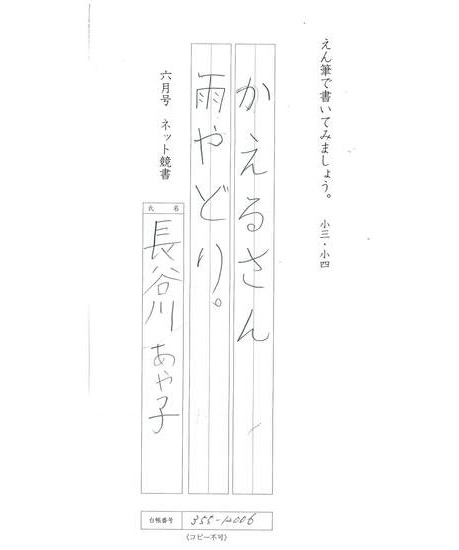 えん筆で書いてみましょう。 小三・小四
かえるさん
雨やどり。
六月号 ネット競書
氏名
長谷川 あや子
台帳番号 355-12006
(コピー不可)